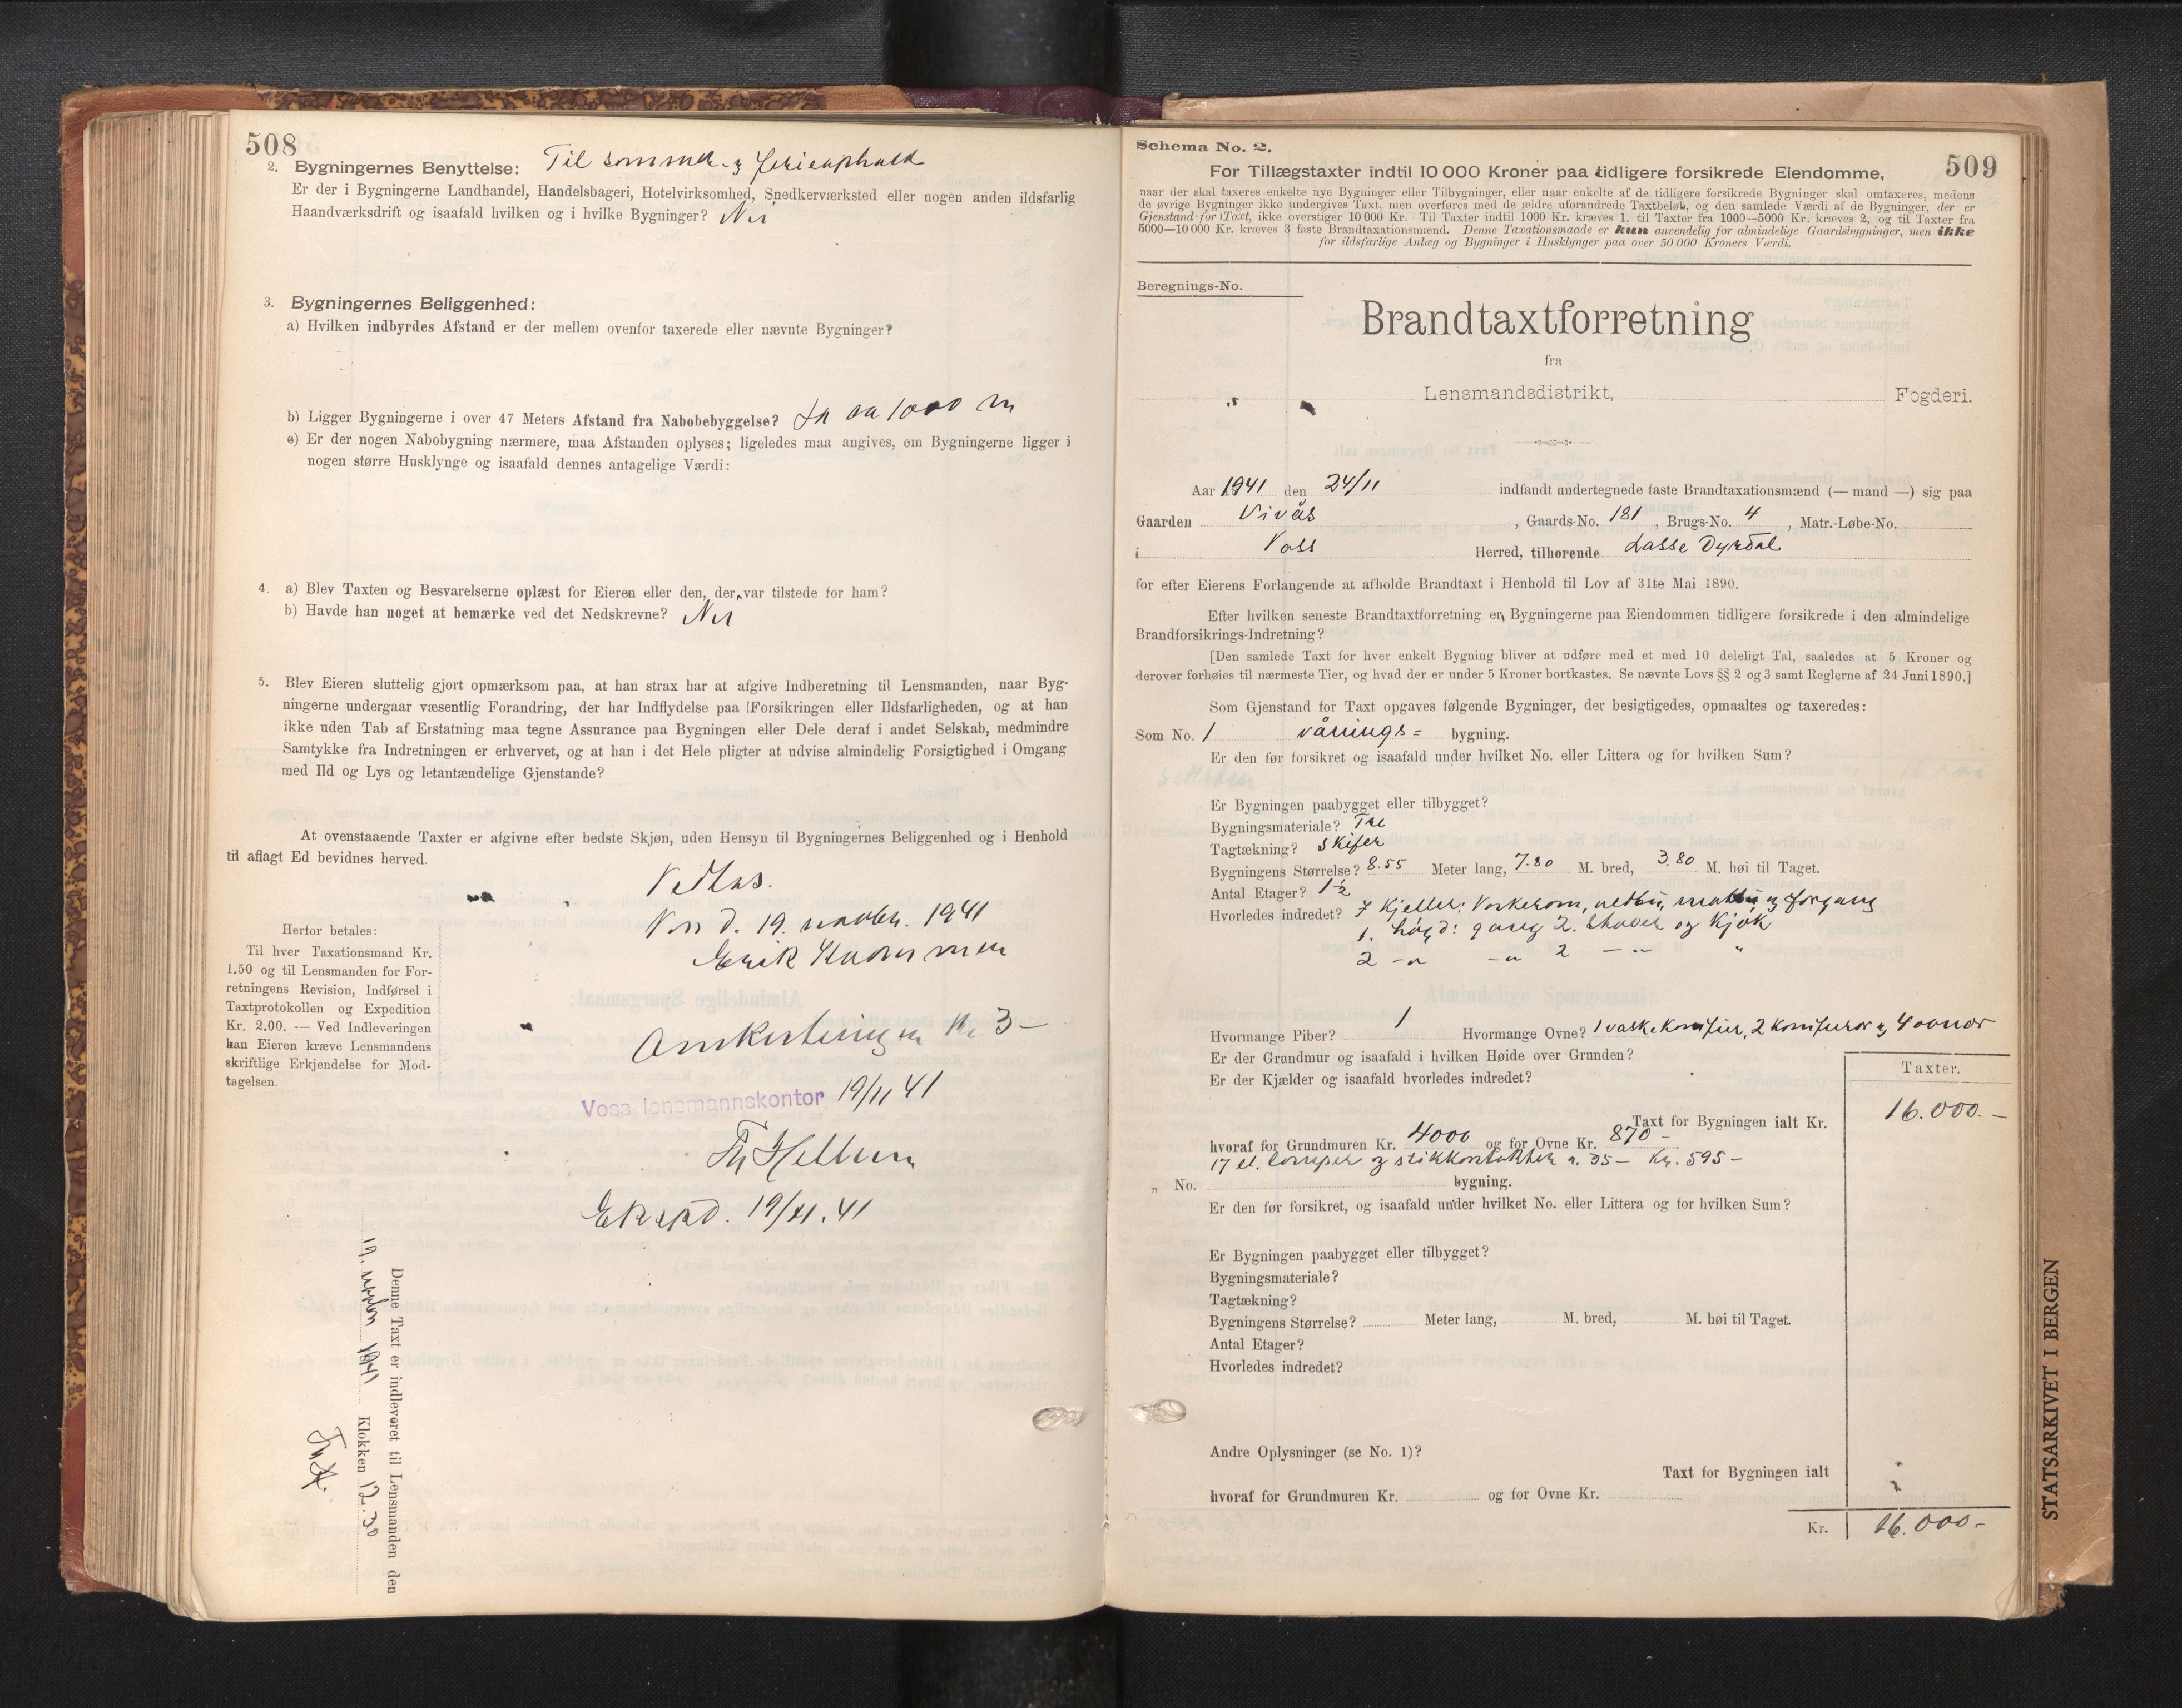 508
2. Bygningernes Benyttelse: Til sommer- og ferieophold
Er der i Bygningerne Landhandel, Handelsbageri, Hotelvirksomhed, Snedkerværksted eller nogen anden ildsfarlig
Haandværksdrift og isaafald hvilken og i hvilke Bygninger? Nei
3. Bygningernes Beliggenhed:
a) Hvilken indbyrdes Afstand er der mellem ovenfor taxerede eller nævnte Bygninger?
b) Ligger Bygningerne i over 47 Meters Afstand fra Nabobebyggelse? Ja ca 1000 m
c) Er der nogen Nabobygning nærmere, maa Afstanden oplyses; ligeledes maa angives, om Bygningerne ligger i
nogen større Husklynge og isaafald dennes antagelige Værdi:
4. a) Blev Taxten og Besvarelserne oplæst for Eieren eller den, der var tilstede for ham?
b) Havde han noget at bemærke ved det Nedskrevne? Nei
5. Blev Eieren sluttelig gjort opmærksom paa, at han strax har at afgive Indberetning til Lensmanden, naar Byg-
ningerne undergaar væsentlig Forandring, der har Indflydelse paa Forsikringen eller Ildsfarligheden, og at han
ikke uden Tab af Erstatning maa tegne Assurance paa Bygningen eller Dele deraf i andet Selskab, medmindre
Samtykke fra Indretningen er erhvervet, og at han i det Hele pligter at udvise almindelig Forsigtighed i Omgang
med Ild og Lys og letantændelige Gjenstande?
At ovenstaaende Taxter er afgivne efter bedste Skjøn, uden Hensyn til Bygningernes Beliggenhed og i Henhold
til aflagt Ed bevidnes herved.
Voss d. 19. novbr. 1941
Erik
Herfor betales:
Til hver Taxationsmand Kr.
1.50 og til Lensmanden for For-
retningens Revision, Indførsel i
Taxtprotokollen og Expedition
Kr. 2.00. — Ved Indleveringen
kan Eieren kræve Lensmandens
skriftlige Erkjendelse for Mod-
tagelsen.
3 –
Voss lensmannskontor 19/11 41
Eksped. 19/11.41
Denne Taxt er indleveret til Lensmanden den
19. novbr 1941 Klokken 12.30
Schema No. 2.
509
For Tillægstaxter indtil 10 000 Kroner paa tidligere forsikrede Eiendomme,
naar der skal taxeres enkelte nye Bygninger eller Tilbygninger, eller naar enkelte af de tidligere forsikrede Bygninger skal omtaxeres, medens
de øvrige Bygninger ikke undergives Taxt, men overføres med de ældre uforandrede Taxtbeløb, og den samlede Værdi af de Bygninger, der er
Gjenstand for Taxt, ikke overstiger 10 000 Kr. Til Taxter indtil 1000 Kr. kræves 1, til Taxter fra 1000—5000 Kr. kræves 2, og til Taxter fra
5000—10 000 Kr. kræves 3 faste Brandtaxationsmænd. Denne Taxationsmaade er kun anvendelig for almindelige Gaardsbygninger, men ikke
for ildsfarlige Anlæg og Bygninger i Husklynger paa over 50 000 Kroners Værdi.
Beregnings-No.
Brandtaxtforretning
fra
Lensmandsdistrikt, Fogderi.
Aar 1941 den 24/11 indfandt undertegnede faste Brandtaxationsmænd (— mand —) sig paa
Gaarden Vivås, Gaards-No. 181, Brugs-No. 4, Matr.-Løbe-No.
i Voss Herred, tilhørende Lasse Dyrdal
for efter Eierens Forlangende at afholde Brandtaxt i Henhold til Lov af 31te Mai 1890.
Efter hvilken seneste Brandtaxtforretning er Bygningerne paa Eiendommen tidligere forsikrede i den almindelige
Brandforsikrings-Indretning?
[Den samlede Taxt for hver enkelt Bygning bliver at udføre med et med 10 deleligt Tal, saaledes at 5 Kroner og
derover forhøies til nærmeste Tier, og hvad der er under 5 Kroner bortkastes. Se nævnte Lovs §§ 2 og 3 samt Reglerne af 24 Juni 1890.]
Som Gjenstand for Taxt opgaves følgende Bygninger, der besigtigedes, opmaaltes og taxeredes:
Som No. 1 vånings= bygning.
Er den før forsikret og isaafald under hvilket No. eller Littera og for hvilken Sum?
Er Bygningen paabygget eller tilbygget?
Bygningsmateriale? Tre
Tagtækning? Skifer
Bygningens Størrelse? 8.55 Meter lang, 7.80 M. bred, 3.80 M. høi til Taget.
Antal Etager? 1½
Hvorledes indredet? I kjeller: Vaskerom, vedbu, matbu og forgang
1. høgd: gang 2. stover og kjøk
2 –"– –"– 2 –"– "
Hvormange Piber? 1 Hvormange Ovne? 1 vaskekomfur, 2 komfurer og 4 ovner
Er der Grundmur og isaafald i hvilken Høide over Grunden?
Er der Kjælder og isaafald hvorledes indredet?
Taxter.
Taxt for Bygningen ialt Kr. 16.000.–
hvoraf for Grundmuren Kr. 4000 og for Ovne Kr. 870–
17 el. lamper og stikkontakter a. 35– Kr. 595–
„ No. bygning.
Er den før forsikret, og isaafald under hvilket No. eller Littera og for hvilken Sum?
Er Bygningen paabygget eller tilbygget?
Bygningsmateriale?
Tagtækning?
Bygningens Størrelse? Meter lang, M. bred, M. høi til Taget.
Antal Etager?
Hvorledes indredet?
Andre Oplysninger (se No. 1)?
Taxt for Bygningen ialt
hvoraf for Grundmuren Kr. og for Ovne Kr.
Kr. 16.000–
STATSARKIVET I BERGEN